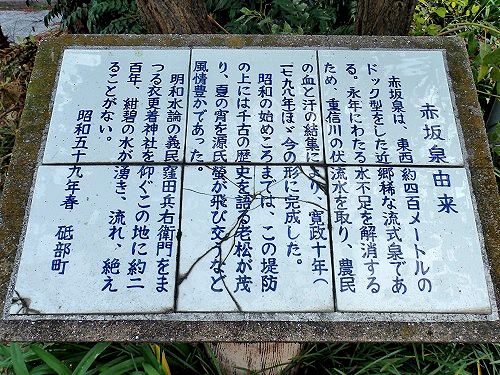 赤坂泉由来
赤坂泉は、東西約四百メートルの
ドック型をした近郷稀な流式泉であ
る。永年にわたる水不足を解消する
ため、重信川の伏流水を取り、農民
の血と汗の結集により、寛政十年(
一七九八年)ほゞ今の形に完成した。
昭和の始めころまでは、この堤防
の上には千古の歴史を語る老松が茂
り、夏の宵を源氏螢が飛び交うなど
風情豊かであった。
明和水論の義民窪田兵右衛門をま
つる衣更着神社を仰ぐこの地に約二
百年、紺碧の水が湧き、流れ、絶え
ることがない。
昭和五十九年春 砥部町